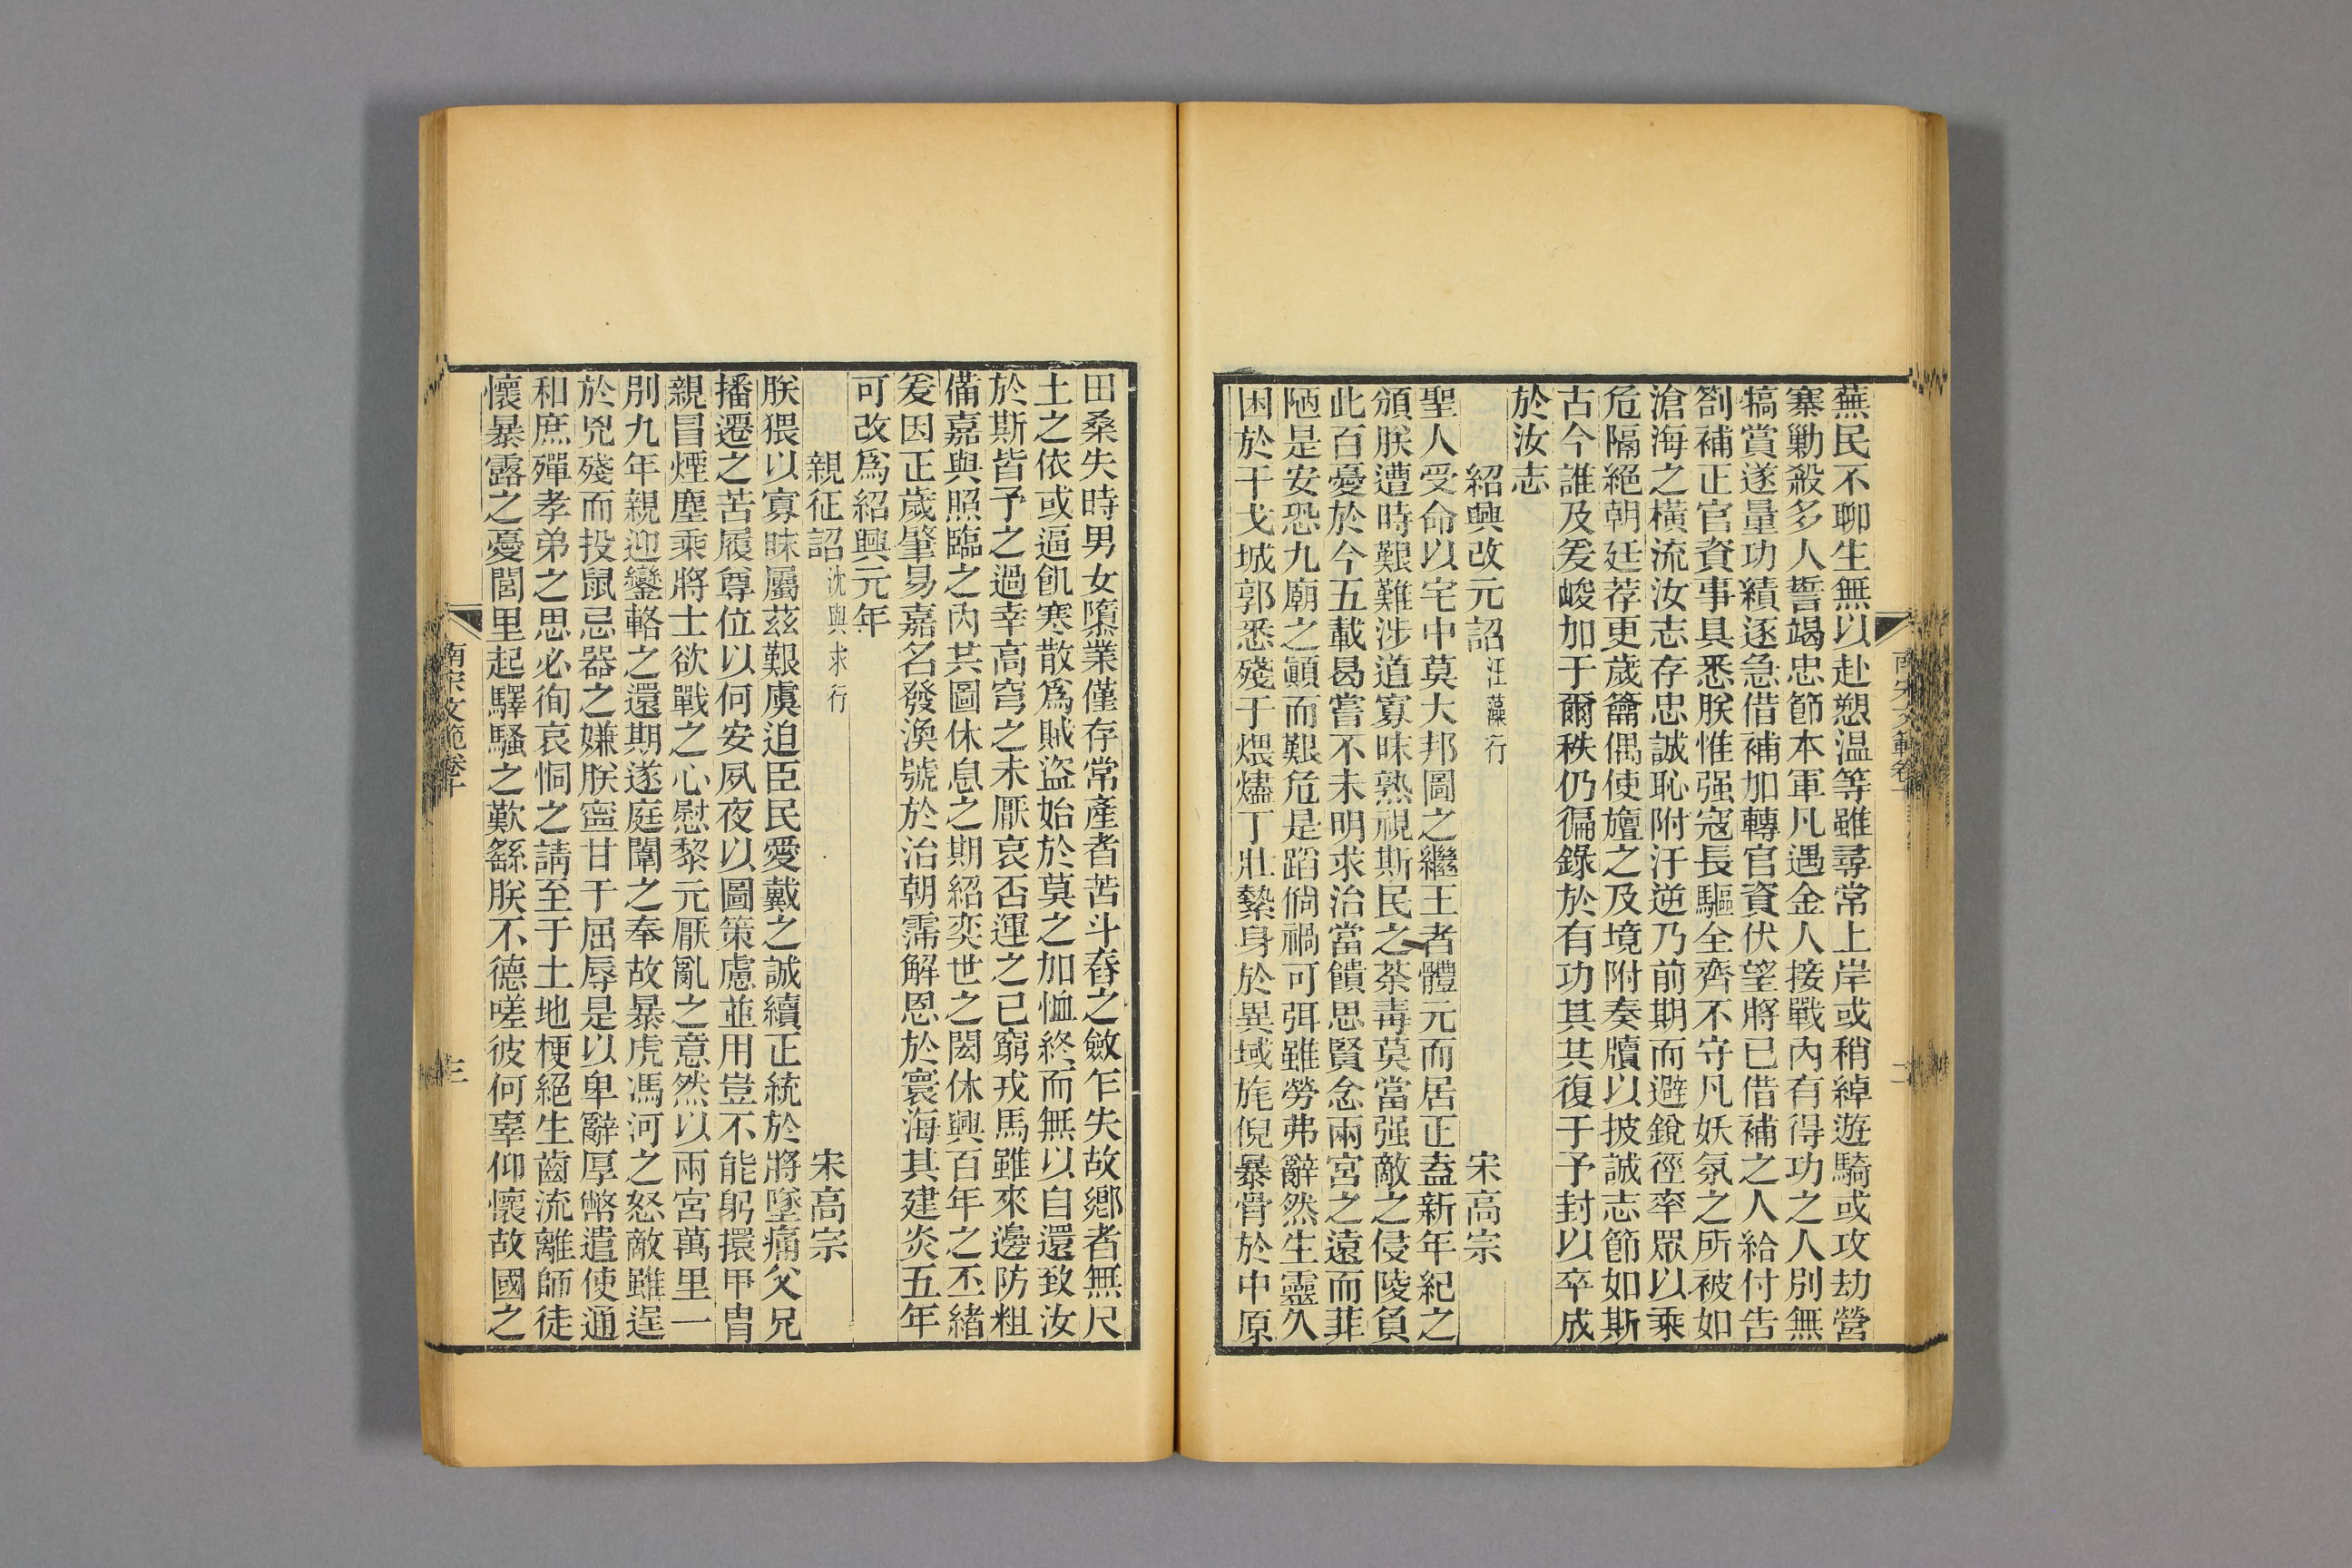 蕪民不聊生無以赴愬温等雖尋常上岸或稍綽遊騎或攻劫營
寨勦殺多人誓竭忠節本軍凡遇金人接戰內有得功之人別無
犒賞遂量功績逐急借補加轉官資伏望將已借補之人給付告
劄補正官資事具悉朕惟强寇長驅全齊不守凡妖氛之所被如
滄海之橫流汝志存忠誠恥附汙逆乃前期而避銳徑率眾以乘
危隔絕朝廷荐更歲籥偶使旜之及境附奏牘以披誠志節如斯
古今誰及爰峻加于爾秩仍徧錄於有功其其復于予封以卒成
於汝志
紹興改元詔汪藻行 宋高宗
聖人受命以宅中莫大邦圖之繼王者體元而居正葢新年紀之
頒朕遭時艱難涉道寡昧熟視斯民之荼毒莫當强敵之侵陵負
此百憂於今五載曷嘗不未明求治當饋思賢念兩宮之遠而菲
陋是安恐九廟之顚而艱危是蹈倘禍可弭雖勞弗辭然生靈久
困於干戈城郭悉殘于煨燼丁壯縶身於異域旄倪暴骨於中原
南宋文範卷十
二
田桑失時男女隳業僅存常產者苦斗舂之斂乍失故鄉者無尺
土之依或逼飢寒散爲賊盜始於莫之加恤終而無以自還致汝
於斯皆予之過幸高穹之未厭哀否運之已窮戎馬雖來邊防粗
備嘉與照臨之內共圖休息之期紹奕世之閎休興百年之丕緒
爰因正歲肇易嘉名發渙號於治朝霈解恩於寰海其建炎五年
可改爲紹興元年
親征詔沈與求行 宋高宗
朕猥以寡昧屬茲艱虞迫臣民愛戴之誠續正統於將墜痛父兄
播遷之苦履尊位以何安夙夜以圖策慮並用豈不能躬擐甲冑
親冒煙塵乘將士欲戰之心慰黎元厭亂之意然以兩宮萬里一
別九年親迎鑾輅之還期遂庭闈之奉故暴虎馮河之怒敵雖逞
於兇殘而投鼠忌器之嫌朕寍甘于屈辱是以卑辭厚幣遣使通
和庶殫孝弟之思必徇哀恫之請至于土地梗絕生齒流離師徒
懷暴露之憂閭里起驛騷之歎繇朕不德嗟彼何辜仰懷故國之
南宋文範卷十
三